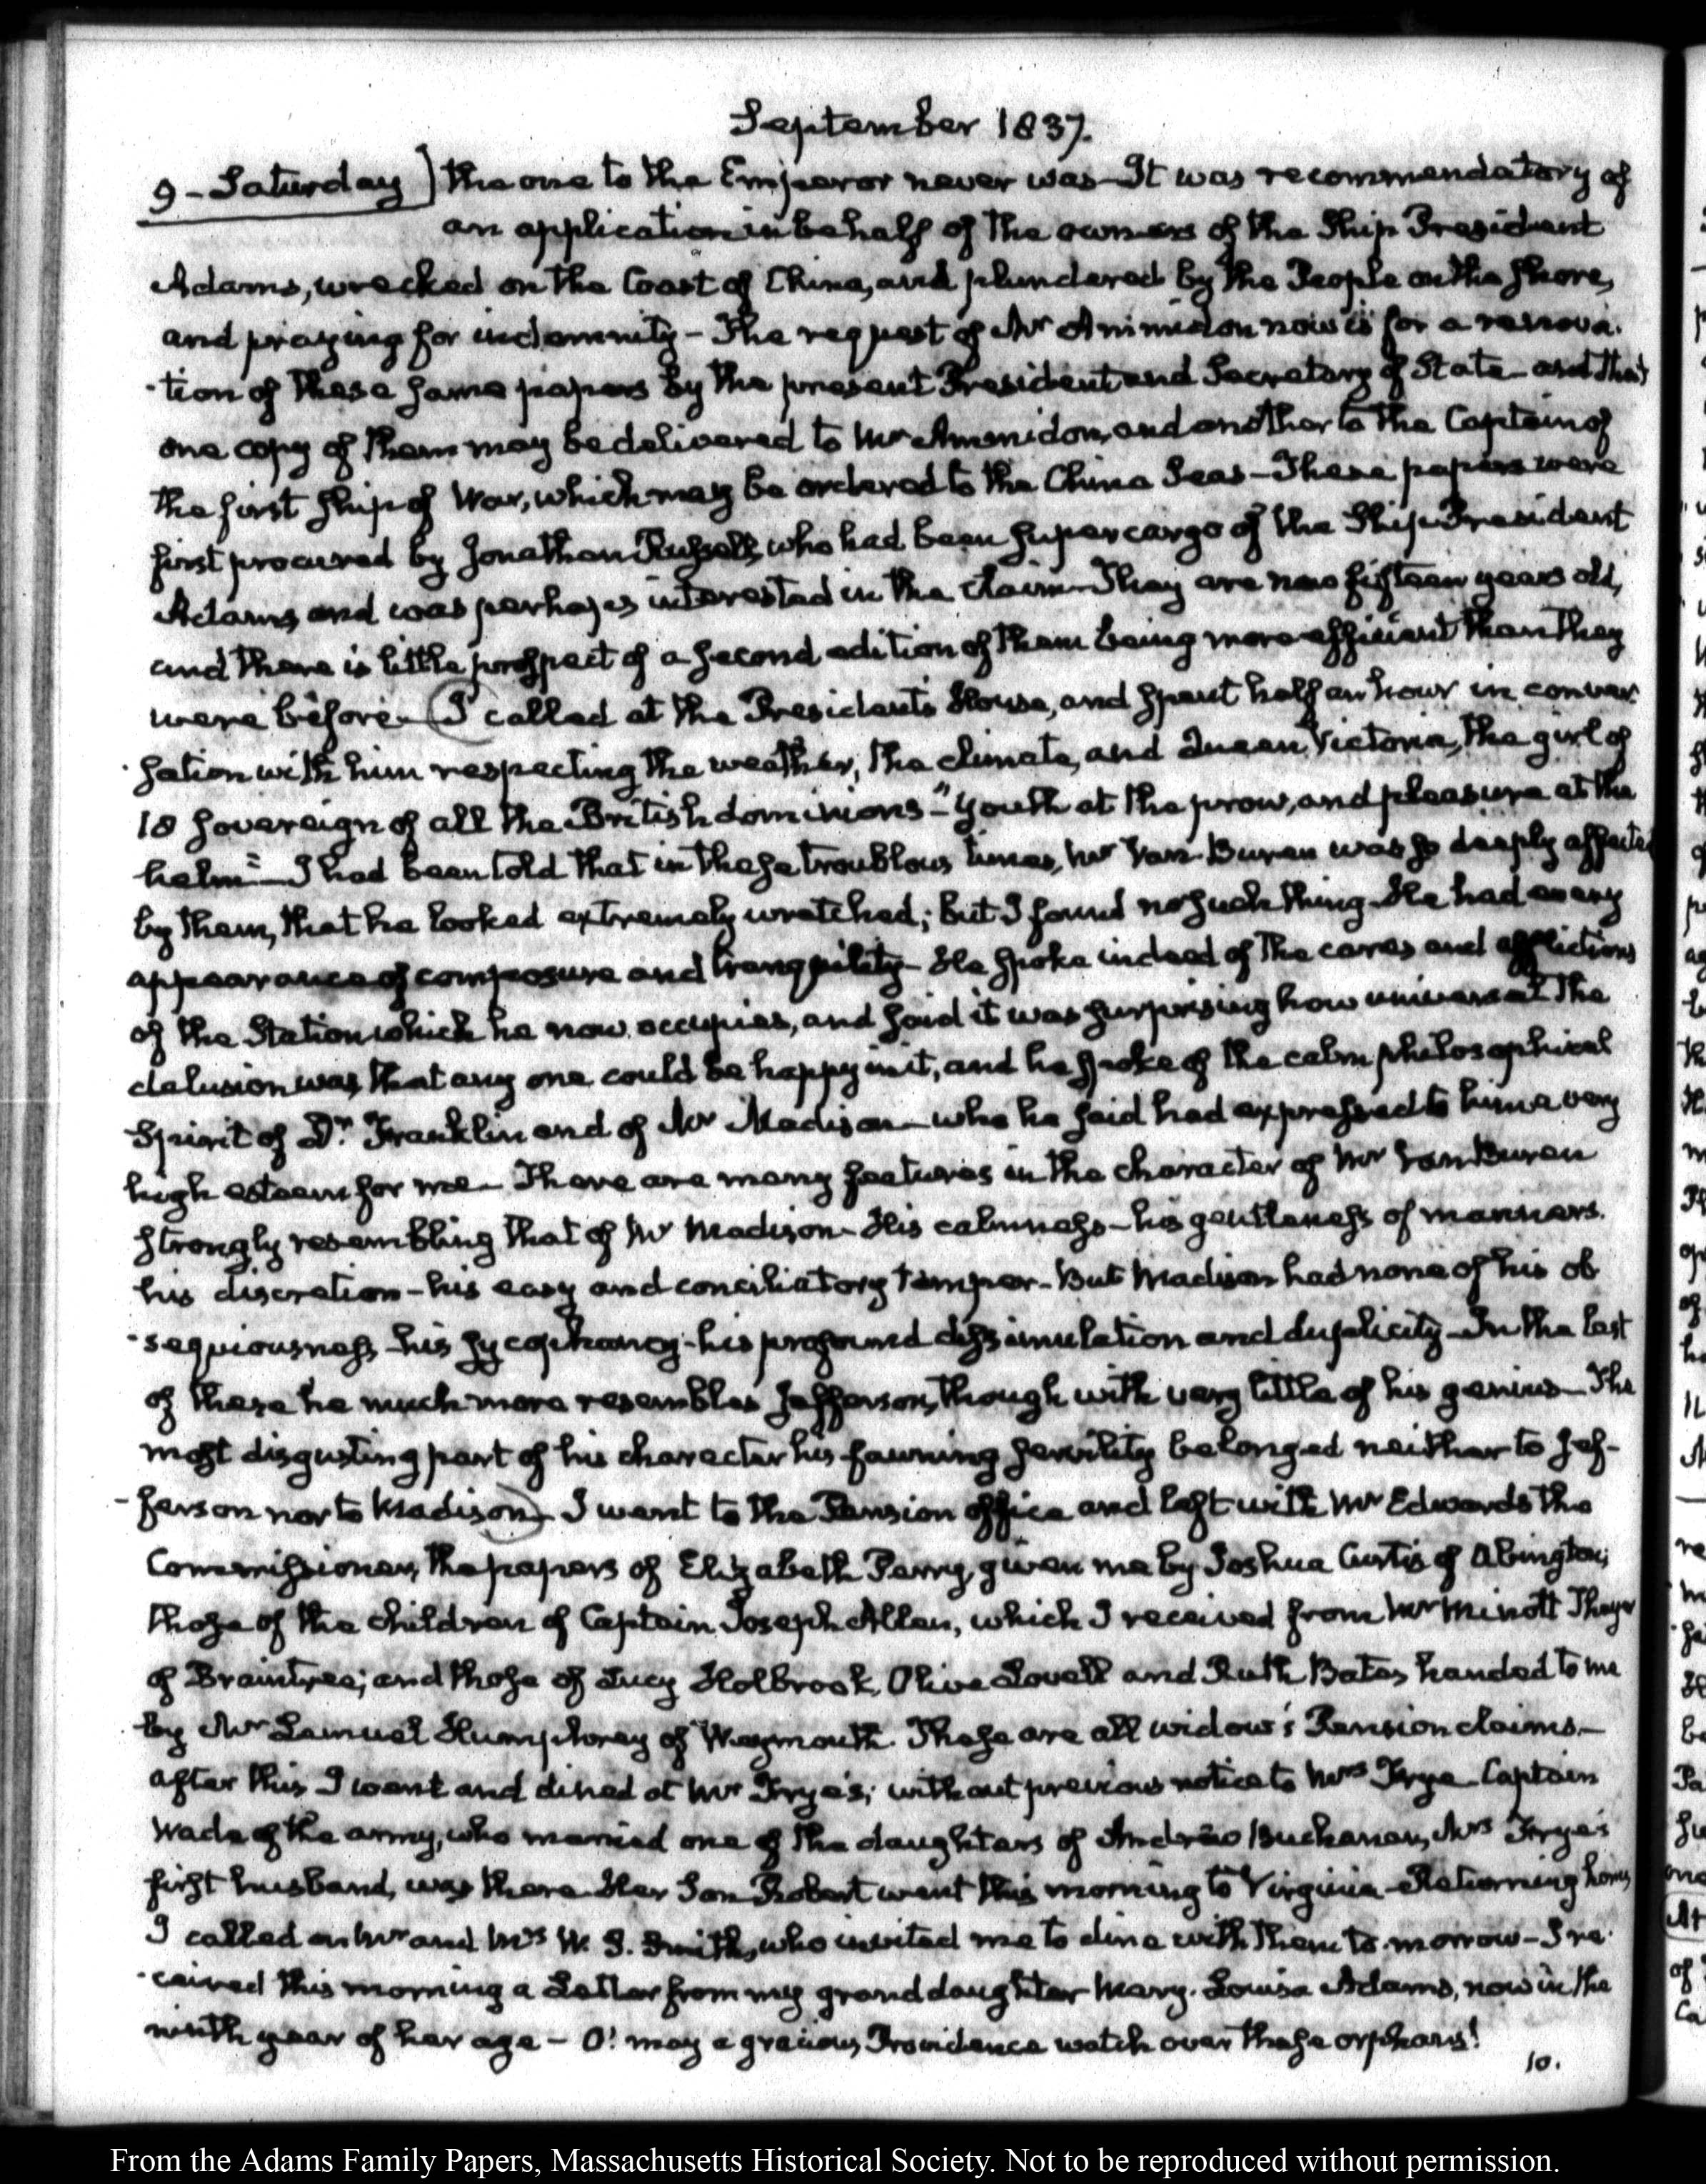 September 1837.
9 - Saturday) the one to the Emperor never was - It was recommendatory of
an application in behalf of the owners of the Ship President
Adams, wrecked on the Coast of China, and plundered by the People on the Shore,
and praying for indemnity - The request of Mr Ammidon now is for a renova-
-tion of these same papers by the present President and Secretary of State - and that
one copy of them may be delivered to Mr Ammidon, and another to the Captain of
the first Ship of War, which may be ordered to the China Seas - These papers were
first procured by Jonathan Russell, who had been Supercargo of the Ship President
Adams and was perhaps interested in the claim - They are now fifteen years old,
and there is little prospect of a second edition of them being more efficient than they
were before. (I called at the President's House, and spent half an hour in conver-
-sation with him respecting the weather, the climate, and Queen Victoria, the girl of
18 Sovereign of all the British dominions - "Youth at the prow, and pleasure at the
helm" - I had been told that in these troublous times, Mr Van Buren was so deeply affected
by them, that he looked extremely wretched; but I found no such thing - He had every
appearance of composure and tranquility - He spoke indeed of the cares and afflictions
of the Station which he now occupies, and said it was surprising how universal the
delusion was, that any one could be happy in it, and he spoke of the calm philosophical
Spirit of Dr. Franklin and of Mr Madison - who he said had expressed to him a very
high esteem for me - There are many features in the character of Mr Van Buren
strongly resembling that of Mr Madison - His calmness - his gentleness of manners.
his discretion - his easy and conciliatory temper - But Madison had none of his ob
-sequiousness, his sycophancy - his profound dissimulation and duplicity - In the last
of these he much more resembles Jefferson, though with very little of his genius - The
most disgusting part of his character his fawning servility belonged neither to Jef-
-ferson nor to Madison) I went to the Pension office and left with Mr Edwards the
Commissioner, the papers of Elizabeth Perry, given me by Joshua Curtis of Abington;
those of the children of Captain Joseph Allen, which I received from Mr Minott Thayer
of Braintree; and those of Lucy Holbrook, Olive Lovell and Ruth Bates, handed to me
by Mr Lemuel Humphrey of Weymouth. These are all widow's Pension claims. -
after this I went and dined at Mr Frye's; without previous notice to Mrs Frye - Captain
Wade of the army, who married one of the daughters of Andrew Buchanan, Mrs Frye's
first husband, was there. Her Son Robert went this morning to Virginia - Returning home,
I called on Mr and Mrs W. S. Smith, who invited me to dine with them to-morrow - I re-
-ceived this morning a Letter from my granddaughter Mary-Louisa Adams, now in the
ninth year of her age - O! may a gracious Providence watch over these orphans!
10.
From the Adams Family Papers, Massachusetts Historical Society. Not to be reproduced without permission.